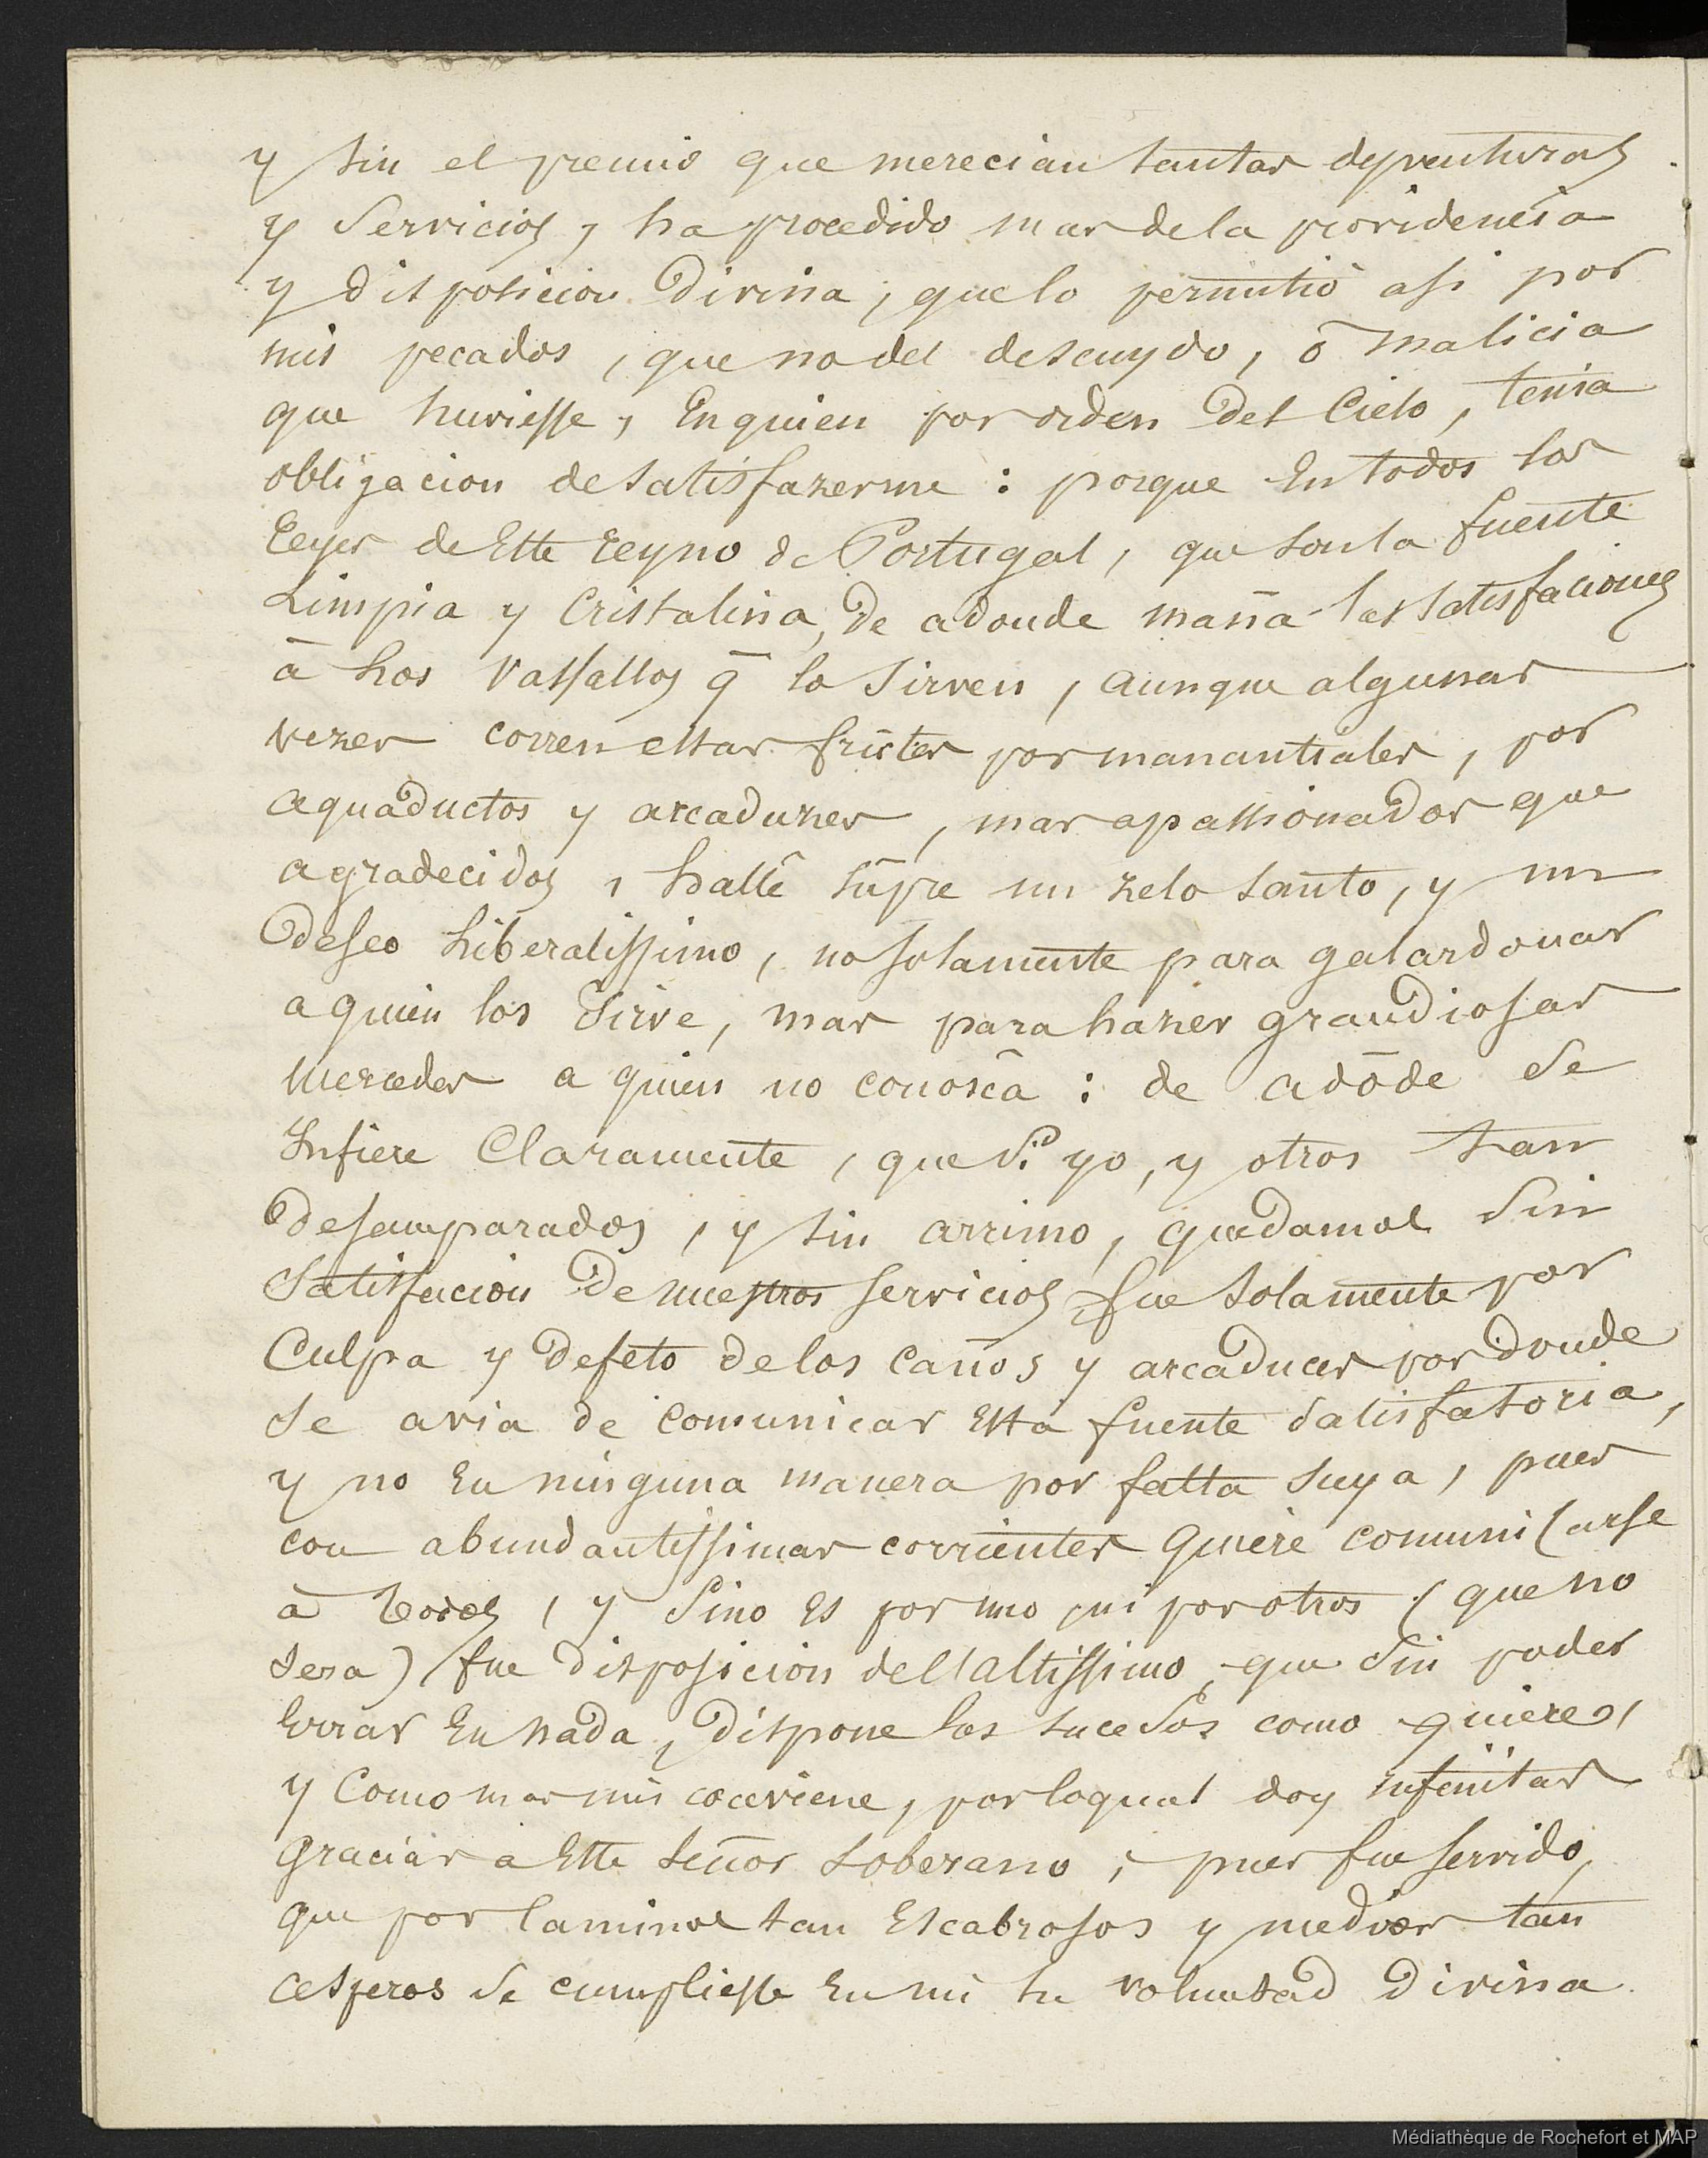 y sin el premio que merecian tantas desventuras
y Servicios, ha procedido mas de la providencia
y disposicion Divina, que lo permitiò asi por
mis pecados, que no del descuydo, ō malicia
que huviesse, En quien por orden Del Cielo, tenia
obligacion de satisfazerme : porque En todos los
Reyes de Este Reyno de Portugal, que son la fuente
Limpia y Cristalina, De adonde manā las satisfaciones
ā Los Vassallos q̄ lo Sirven, aunque algunas
vezes corren estas por manantiales, por
aquaductos y arcaduzes, mas apassionados que
agradecidos, hallê siēpre un zelo santo, y un
Deseo Liberalissimo, no solamente para galardonar
a quien los Sirve, mas para hazer grandiosas
Mercedes a quien no conoscā : de adōde se
Infiere Claramente, que Si yo, y otros tan
Desamparados, y sin arrimo, quedamos Sin
Satisfacion De nuestros servicios, fue solamente por
Culpa y Defeto de los caños y arcaduces por Donde
se avia de comunicar Esta fuente satisfatoria,
y no En ninguna manera por falta suya, pues
con abundantissimas corrientes quiere comunicarse
à todos, y Sino es por uno, ni por otros (que no
sera) fue disposicion dell altissimo, que Sin poder
Errar En nada, Dispone los sucesos como quiere,
y Como mas por loqual doy infinitas
Gracias a Este Señor Soberano, pues fue servido,
que por Caminos tan Escabrosos y medios tan
asperos se cumpliesse En mi su voluntad Divina.
Médiathèque de Rochefort et MAP